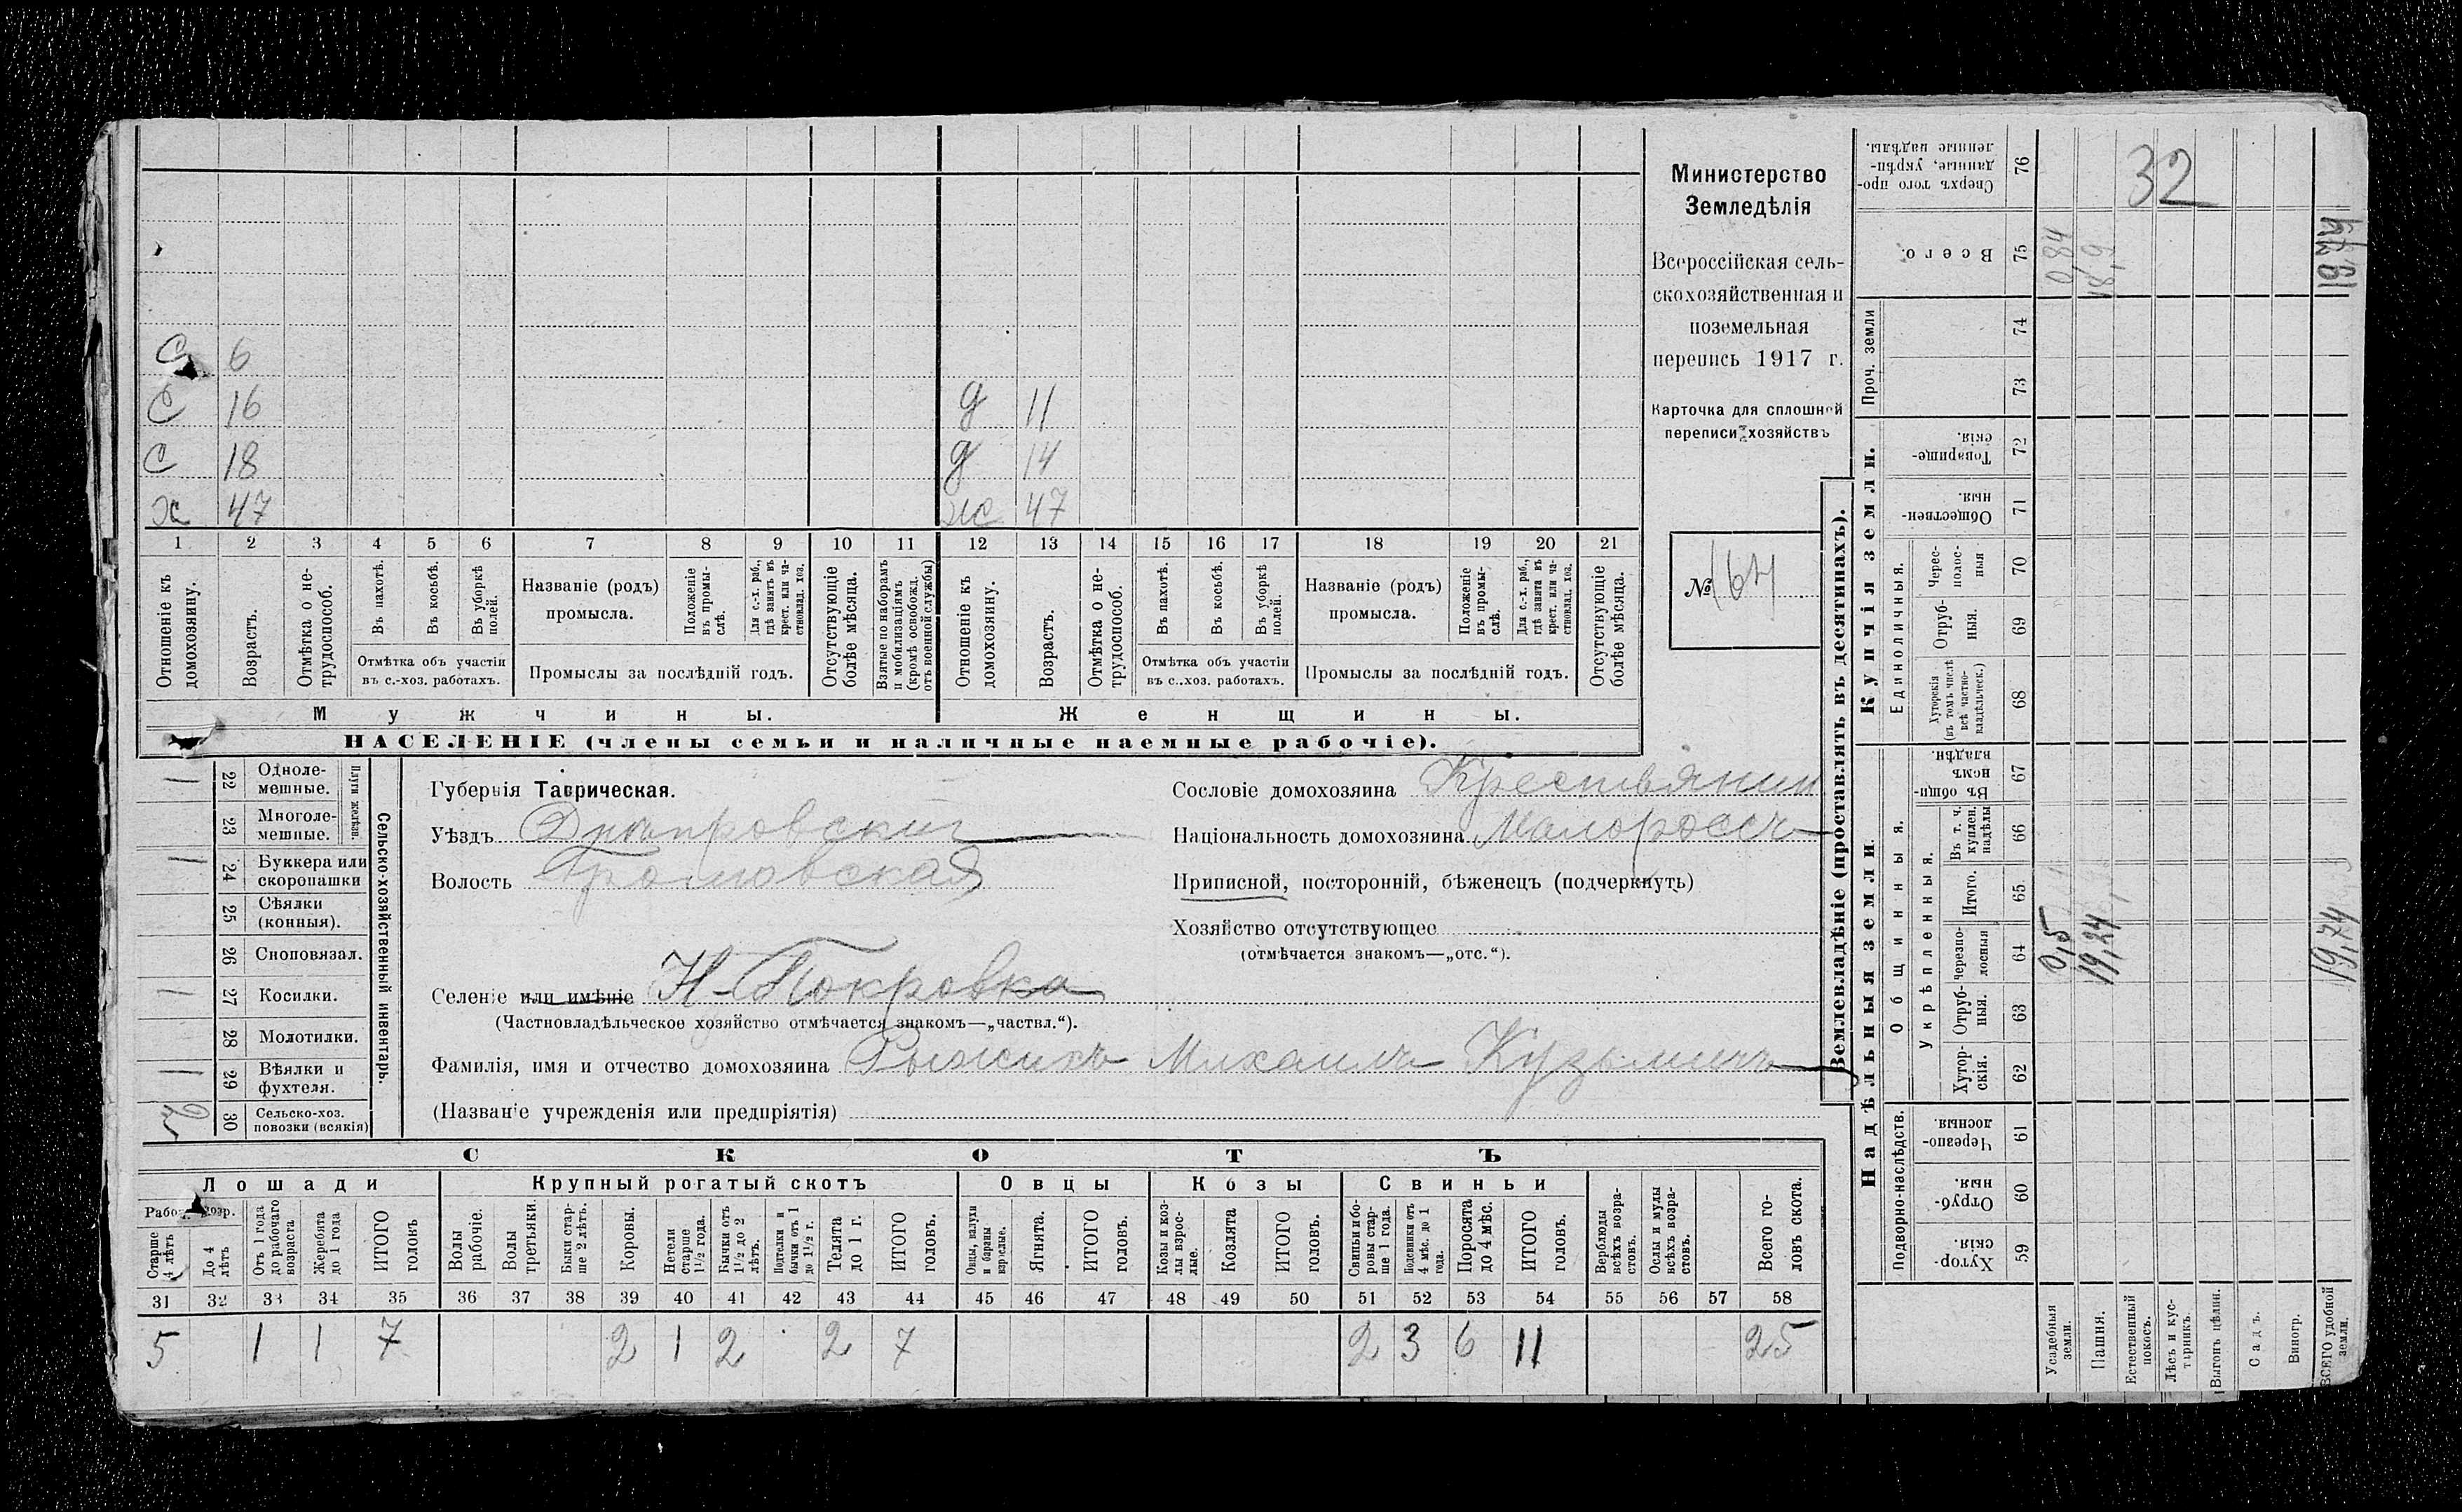 Министерство
Земледѣлія
Всероссійская сель-
скохозяйственная и
поземельная
перепись 1917 г.
Карточка для сплошной
переписи хозяйствъ
№ 164
С 6
С 16
С 18
х 47
д 11
д 14
ж 47
1 2 3 4 5 6 7 8 9 10 11 12 13 14 15 16 17 18 19 20 21
Отношеніе къ домохозяину.
Возрастъ.
Отмѣтка о не-трудоспособ.
Въ пахотѣ.
Въ косьбѣ.
Въ уборкѣ полей.
Отмѣтка объ участіи
въ с.-хоз. работахъ.
Названіе (родъ)
промысла.
Положеніе въ промы-слѣ.
Для с.-х. раб., гдѣ занятъ въ крест. или ча-стновлад. хоз.
Промыслы за послѣдній годъ.
Отсутствующіе болѣе мѣсяца.
Взятые по наборамъ и мобилизаціямъ (кромѣ освобожд. отъ военной службы)
Отношеніе къ домохозяину.
Возрастъ.
Отмѣтка о не-трудоспособ.
Въ пахотѣ.
Въ косьбѣ.
Въ уборкѣ полей.
Отмѣтка объ участіи
въ с..хоз. работахъ.
Названіе (родъ)
промысла.
Положеніе въ промы-слѣ.
Для с.-х. раб., гдѣ занята въ крест. или ча-стновлад. хоз.
Промыслы за послѣдній годъ.
Отсутствующіе болѣе мѣсяца.
Мужчины.
Женщины.
НАСЕЛЕНІЕ (члены семьи и наличные наемные рабочіе).
Сельско-хозяйственный инвентарь.
Плуги желѣзн.
1 22 Одноле-мешные.
23 Многоле-мешные.
1 24 Буккера или скоропашки
25 Сѣялки (конныя).
26 Сноповязал.
1 27 Косилки.
28 Молотилки.
1 29 Вѣялки и фухтеля.
30 Сельско-хоз. повозки (всякія)
Губернія Таврическая.
Уѣздъ Днѣпровскій
Волость Громовская
Селеніе или имѣніе Н-Покровка
(Частновладѣльческое хозяйство отмѣчается знакомъ—„частвл.“).
Фамилія, имя и отчество домохозяина Рыжихъ Михаилъ Кузьмичъ
(Названіе учрежденія или предпріятія)
Сословіе домохозяина Крестьянин
Національность домохозяина Малороссъ
Приписной, посторонній, бѣженецъ (подчеркнуть)
Хозяйство отсутствующее
(отмѣчается знакомъ—„отс.“).
СКОТЪ
Лошади Крупный рогатый скотъ Овцы Козы Свиньи
Рабоч. возр.
Старше 4 лѣтъ
До 4 лѣтъ
Отъ 1 года до рабочаго возраста
Жеребята до 1 года
ИТОГО головъ
Волы рабочіе.
Волы третьяки.
Быки стар-ше 2 лѣтъ.
Коровы.
Нетели старше 1½ года.
Бычки отъ 1½ до 2 лѣтъ.
Подтелки и бычки отъ 1 до 1½ г.
Телята до 1 г.
ИТОГО головъ.
Овцы, валухи и бараны взрослые.
Ягнята.
ИТОГО головъ.
Козы и коз-лы взрос-лые.
Козлята
ИТОГО головъ.
Свиньи и бо-ровы стар-ше 1 года.
Подсвинки отъ 4 мѣс. до 1 года.
Поросята до 4 мѣс.
ИТОГО головъ.
Верблюды всѣхъ возра-стовъ.
Ослы и мулы всѣхъ возра-стовъ.
Всего го-ловъ скота.
31 32 33 34 35 36 37 38 39 40 41 42 43 44 45 46 47 48 49 50 51 52 53 54 55 56 57 58
5 1 1 7 2 1 2 2 7 2 3 6 11 25
Землевладѣніе (проставлять въ десятинахъ).
Надѣльныя земли.
Купчія земли.
Подворно-наслѣдств.
Общинныя.
Укрѣпленныя.
Единоличныя.
Проч. земли
59 Хутор-скія.
60 Отруб-ныя.
61 Черезпо-лосныя.
62 Хутор-скія.
63 Отруб-ныя.
64 Черезпо-лосныя
65 Итого.
66 Въ т. ч. куплен. надѣлы
67 Въ общи-номъ владѣн.
68 Хуторскія (въ томъ числѣ всѣ частно-владѣльческ.)
69 Отруб-ныя.
70 Черес-полос-ныя
71 Обществен-ныя.
72 Товарище-скія.
73
74
75 Всего.
76 Сверхъ того про-данные, укрѣп-ленные надѣлы.
Усадебныя земли.
Пашня.
Естественный покосъ.
Лѣсъ и кус-тарникъ.
Выгонъ цѣлин.
Садъ.
Виногр.
ВСЕГО удобной земли.
0,5
19,24
19,74
0,84
18,9
19,74
32